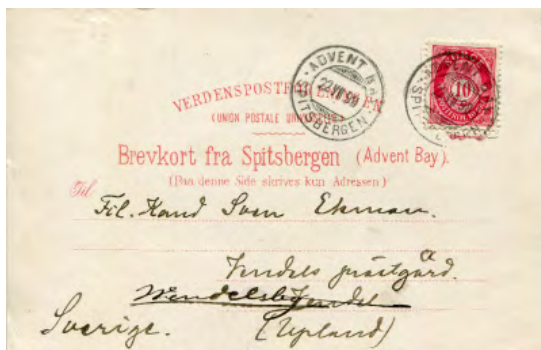 VERDENSPOSTFORENINGEN
(UNION POSTALE UNIVERSELLE)
ADVENT BAY
SPITSBERGEN
10
Brevkort fra Spitsbergen (Advent Bay).
(Paa denne Side skrives kun Adressen)
Til
Fil. Kand Sven Ekman.
Vendels prästgård.
Sverige. (Upland)